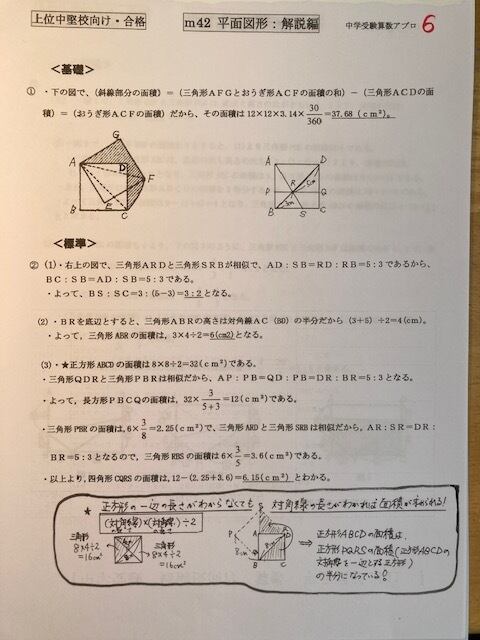 上位中堅校向け・合格
m42 平面図形：解説編
中学受験算数アプロ 6
＜基礎＞
① ・下の図で、（斜線部分の面積）＝（三角形ＡＦＧとおうぎ形ＡＣＦの面積の和）－（三角形ＡＣＤの面
積）＝（おうぎ形ＡＣＦの面積）だから、その面積は 12×12×3.14×30/360＝37.68（ｃｍ²）。
G
A D
F
E
B C
A D
R 5cm
P Q
3cm
B S C
＜標準＞
② (1)・右上の図で、三角形ＡＲＤと三角形ＳＲＢが相似で、ＡＤ：ＳＢ＝ＲＤ：ＲＢ＝5：3であるから、
ＢＣ：ＳＢ＝ＡＤ：ＳＢ＝5：3である。
・よって、ＢＳ：ＳＣ＝3：(5－3)＝3：2となる。
(2)・ＢＲを底辺とすると、三角形ＡＢＲの高さは対角線ＡＣ（BD）の半分だから（3＋5）÷2＝4(cm)。
・よって、三角形 ABR の面積は、3×4÷2＝6(cm2)となる。
(3)・★正方形ABCDの面積は8×8÷2＝32(ｃｍ²)である。
・三角形ＱＤＲと三角形ＰＢＲは相似だから、ＡＰ：ＰＢ＝ＱＤ：ＰＢ＝ＤＲ：ＢＲ＝5：3となる。
・よって、長方形ＰＢＣＱの面積は、32×3/5＋3＝12(ｃｍ²)である。
・三角形PBRの面積は,6×3/8＝2.25(ｃｍ²)で、三角形ＡＲＤと三角形ＳＲＢは相似だから。ＡＲ：ＳＲ＝ＤＲ：
ＢＲ＝5：3となるので、三角形RBSの面積は6×3/5＝3.6(ｃｍ²)である。
・以上より,四角形CQRSの面積は,12－(2.25＋3.6)＝6.15(ｃｍ²) とわかる。
★ 正方形の一辺の長さがわからなくても 対角線の長さがわかれば面積が求められる!
(対角線)×(対角線)÷2
三角形
8×4÷2
＝16cm²
三角形
8×4÷2
＝16cm²
P
8cm
A D
B C
⇒ 正方形ABCDの面積は、
正方形PQRSの面積(正方形ABCDの
対角線を一辺とする正方形)
の半分になっている!